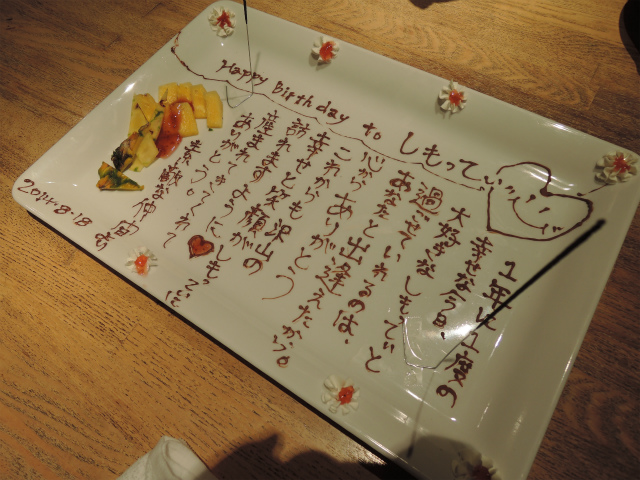 Happy Birthday to しもってぃ
1年に1度の
幸せな今日、
大好きなしもってぃと
過ごせていれるのは、
あなたと出逢えたから。
心から ありがとう
これからも沢山の
幸せと笑顔が
訪れますように
産まれてきてくれて
ありがとう しもってぃ
素敵な仲間
2014.8.18